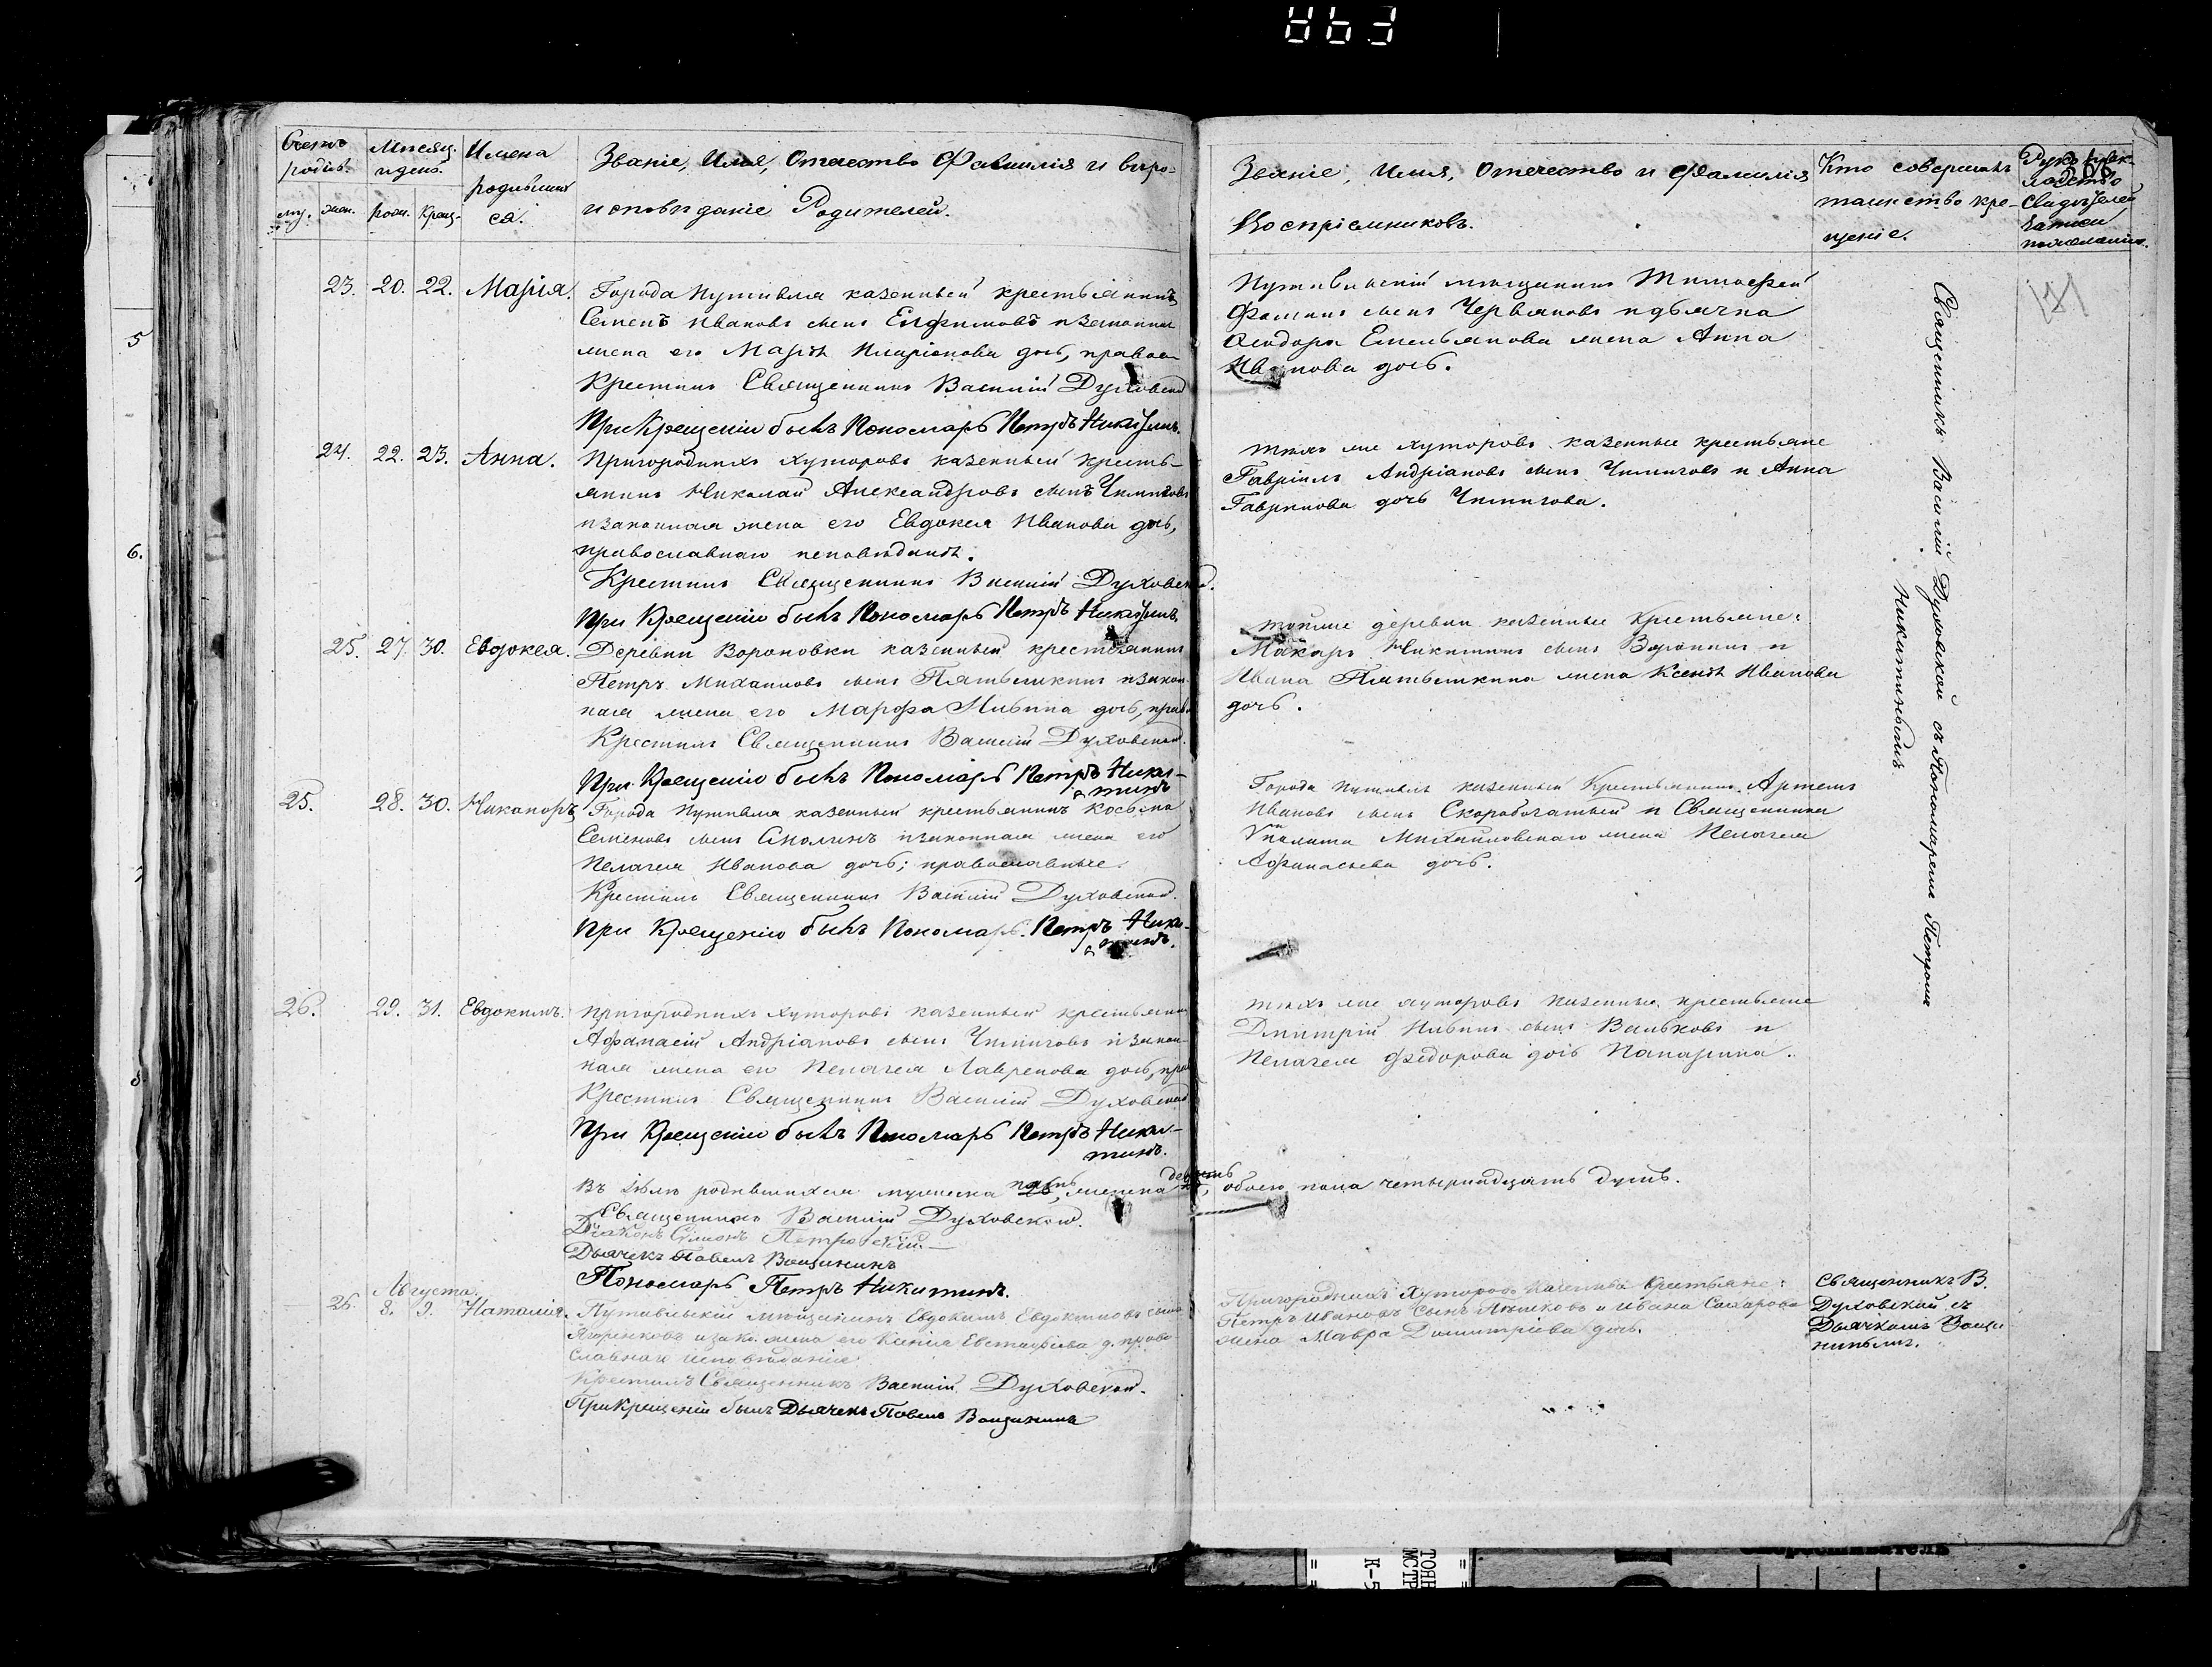 Счетъ родив. Мѣсяц. и день. Имена родившихся. Званіе, Имя, Отчество Фамилія и вѣро-
исповѣданіе Родителей.
му. жен. рож. Крещ.
23. 20. 22. Марія. Города Путивля казенный крестьянинъ
Семенъ Ивановъ сынъ и законная
жена его Марѳа Иларіонова дочь, правос
Крестилъ Священникъ Василій Духовской
При Крещеніи былъ Пономарь Петръ Никитинъ.
24. 22. 23. Анна. Пригородныхъ хуторовъ казенный кресть-
янинъ Николай Александровъ сынъ Чимиговъ
и законная жена его Евдокея Иванова дочь,
православнаго исповѣданія.
Крестилъ Священникъ Василій Духовской.
При Крещеніи былъ Пономарь Петръ Никитинъ.
25. 27. 30. Евдокея. Деревни Вороновки казенный крестьянинъ
Петръ Михаиловъ сынъ и закон-
ная жена его Марфа Ильина дочь, прав.
Крестилъ Священникъ Василій Духовской.
При Крещеніи былъ Пономарь Петръ Ники-
тинъ
25. 28. 30. Никаноръ Города Путивля казенный крестьянинъ Косьма
Семеновъ сынъ и законная жена его
Пелагея Иванова дочь; православные.
Крестилъ Священникъ Василій Духовской.
При Крещеніи былъ Пономарь Петръ Ники-
тинъ.
26. 29. 31. Евдокимъ. Пригородныхъ хуторовъ казенный крестьянин
Афанасій Андріановъ сынъ Чимиговъ и закон-
ная жена его Пелагея Лавренова дочь, прав
Крестилъ Священникъ Василій Духовской
При Крещеніи былъ Пономарь Петръ Ники-
тинъ.
родившихся мужеска пять, женска девять
Священникъ Василій Духовской.
Діаконъ Петровскій.
Дьячекъ Павелъ Вощининъ
Пономарь Петръ Никитинъ.
Августа.
26. 8. 9. Наталія. Путивльскій мѣщанинъ Евдокимъ Евдокимовъ сынъ
и зако. жена его Ксенія Евстафіева д. право
славнаго исповѣданія
Крестилъ Священникъ Василій Духовской.
При Крещеніи былъ Дьячекъ Павелъ Вощининъ
Званіе, Имя, Отечество и Фамилія
Воспріемниковъ.
Кто совершалъ
таинство кре-
щеніе.
Свидѣтелей
записи
по желанію.
171
Путивльскій мѣщанинъ Тимофей
сынъ Червяковъ и дьячка
Ѳеодора Емельянова жена Анна
Иванова дочь.
тѣхъ же хуторовъ казенные крестьяне
Гавріилъ Андріановъ сынъ Чимиговъ и Анна
Гаврилова дочь Чимигова.
тойже деревни казенные Крестьяне:
Макаръ Никитинъ сынъ Воронинъ и
Ивана жена Ксенія Иванова
дочь.
Города Путивля казенный Крестьянинъ Артемъ
Ивановъ сынъ Скоробогатый и Священника
Михайловскаго жена Пелагея
Афанасьева дочь.
тѣхъ же хуторовъ казенные крестьяне
Дмитрій Ильинъ сынъ Вальковъ и
Пелагея Федорова дочь
обоего пола четырнадцать душъ.
Пригородныхъ Хуторовъ Крестьяне:
Петръ Ивановъ Сынъ и Ивана Сахарова
жена Мавра Димитріева дочь.
Священникъ Василій Духовской съ Пономаремъ Петромъ
Никитинымъ
Священникъ В.
Духовской съ
Дьячкомъ Вощи
нинымъ.